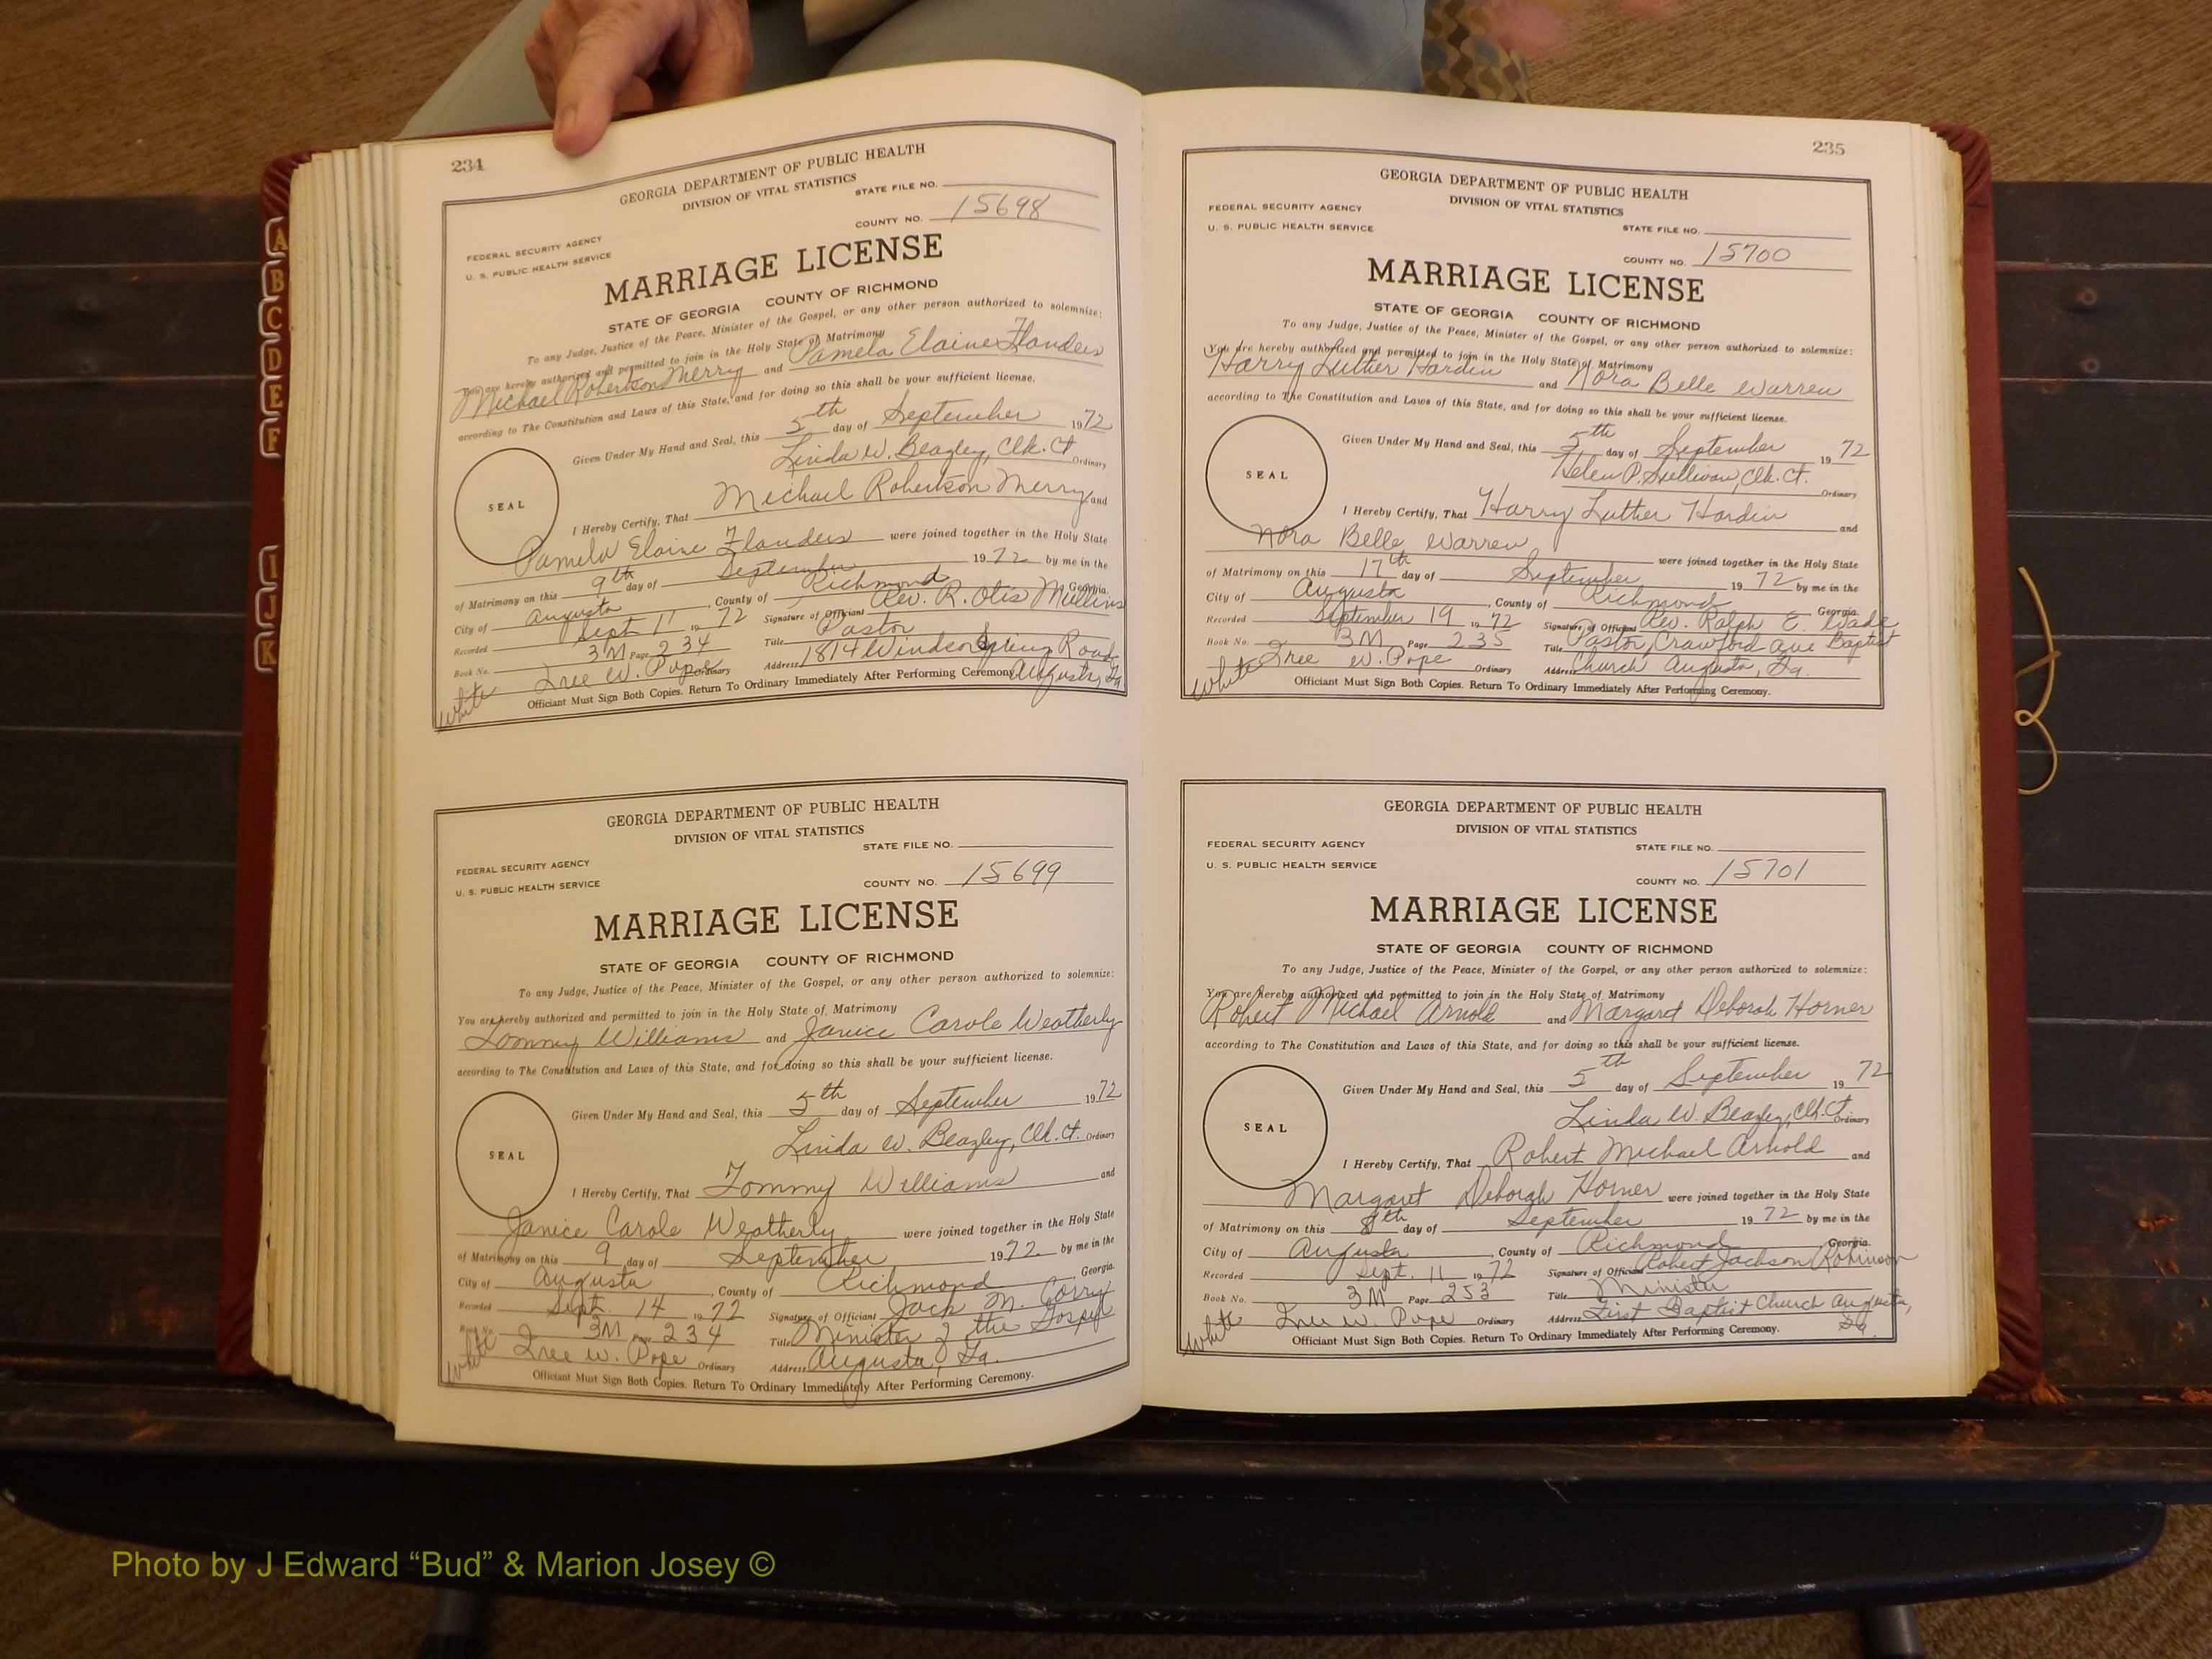 234
GEORGIA DEPARTMENT OF PUBLIC HEALTH
DIVISION OF VITAL STATISTICS
STATE FILE NO.
COUNTY NO. 15698
FEDERAL SECURITY AGENCY
U. S. PUBLIC HEALTH SERVICE
MARRIAGE LICENSE
STATE OF GEORGIA COUNTY OF RICHMOND
To any Judge, Justice of the Peace, Minister of the Gospel, or any other person authorized to solemnize:
You are hereby authorized and permitted to join in the Holy State of Matrimony
Michael Robertson Merry and Pamela Elaine Flanders
according to The Constitution and Laws of this State, and for doing so this shall be your sufficient license.
Given Under My Hand and Seal, this 5th day of September 1972
Linda W. Beazley, Clk. Ct. Ordinary
SEAL
I Hereby Certify, That Michael Robertson Merry and
Pamela Elaine Flanders were joined together in the Holy State
of Matrimony on this 9th day of September 1972 by me in the
City of Augusta, County of Richmond Georgia.
Recorded Sept 11 1972 Signature of Officiant Rev. R. Otis Mullins
Book No. 3M Page 234 Title Pastor
Iree W. Pope Ordinary Address 1814 Windsor Spring Road
Augusta, Ga.
White
Officiant Must Sign Both Copies. Return To Ordinary Immediately After Performing Ceremony.
GEORGIA DEPARTMENT OF PUBLIC HEALTH
DIVISION OF VITAL STATISTICS
STATE FILE NO.
FEDERAL SECURITY AGENCY
U. S. PUBLIC HEALTH SERVICE
COUNTY NO. 15699
MARRIAGE LICENSE
STATE OF GEORGIA COUNTY OF RICHMOND
To any Judge, Justice of the Peace, Minister of the Gospel, or any other person authorized to solemnize:
You are hereby authorized and permitted to join in the Holy State of Matrimony
Tommy Williams and Janice Carole Weatherly
according to The Constitution and Laws of this State, and for doing so this shall be your sufficient license.
Given Under My Hand and Seal, this 5th day of September 1972
Linda W. Beazley, Clk. Ct. Ordinary
SEAL
I Hereby Certify, That Tommy Williams and
Janice Carole Weatherly were joined together in the Holy State
of Matrimony on this 9 day of September 1972 by me in the
City of Augusta, County of Richmond Georgia.
Recorded Sept. 14 1972 Signature of Officiant Jack M. Corry
Book No. 3M Page 234 Title Minister of the Gospel
Iree W. Pope Ordinary Address Augusta, Ga.
White
Officiant Must Sign Both Copies. Return To Ordinary Immediately After Performing Ceremony.
235
GEORGIA DEPARTMENT OF PUBLIC HEALTH
DIVISION OF VITAL STATISTICS
FEDERAL SECURITY AGENCY
U. S. PUBLIC HEALTH SERVICE
STATE FILE NO.
COUNTY NO. 15700
MARRIAGE LICENSE
STATE OF GEORGIA COUNTY OF RICHMOND
To any Judge, Justice of the Peace, Minister of the Gospel, or any other person authorized to solemnize:
You are hereby authorized and permitted to join in the Holy State of Matrimony
Harry Luther Hardin and Nora Belle Warren
according to The Constitution and Laws of this State, and for doing so this shall be your sufficient license.
Given Under My Hand and Seal, this 5th day of September 1972
Helen P. Sullivan, Clk. Ct.
Ordinary
SEAL
I Hereby Certify, That Harry Luther Hardin and
Nora Belle Warren were joined together in the Holy State
of Matrimony on this 17th day of September 1972 by me in the
City of Augusta, County of Richmond Georgia.
Recorded September 19 1972 Signature of Officiant Rev. Ralph E. Wade
Book No. 3M Page 235 Title Pastor, Crawford Ave Baptist
Iree W. Pope Ordinary Address Church Augusta, Ga.
White
Officiant Must Sign Both Copies. Return To Ordinary Immediately After Performing Ceremony.
GEORGIA DEPARTMENT OF PUBLIC HEALTH
DIVISION OF VITAL STATISTICS
FEDERAL SECURITY AGENCY
STATE FILE NO.
U. S. PUBLIC HEALTH SERVICE
COUNTY NO. 15701
MARRIAGE LICENSE
STATE OF GEORGIA COUNTY OF RICHMOND
To any Judge, Justice of the Peace, Minister of the Gospel, or any other person authorized to solemnize:
You are hereby authorized and permitted to join in the Holy State of Matrimony
Robert Michael Arnold and Margaret Deborah Horner
according to The Constitution and Laws of this State, and for doing so this shall be your sufficient license.
Given Under My Hand and Seal, this 5th day of September 1972
Linda W. Beazley, Clk. Ct. Ordinary
SEAL
I Hereby Certify, That Robert Michael Arnold and
Margaret Deborah Horner were joined together in the Holy State
of Matrimony on this 8th day of September 1972 by me in the
City of Augusta, County of Richmond Georgia.
Recorded Sept. 11 1972 Signature of Officiant Robert Jackson Robinson
Book No. 3M Page 253 Title Minister
Iree W. Pope Ordinary Address First Baptist Church Augusta,
Ga.
White
Officiant Must Sign Both Copies. Return To Ordinary Immediately After Performing Ceremony.
A
B
C
D
E
F
I
J
K
Photo by J Edward “Bud” & Marion Josey ©